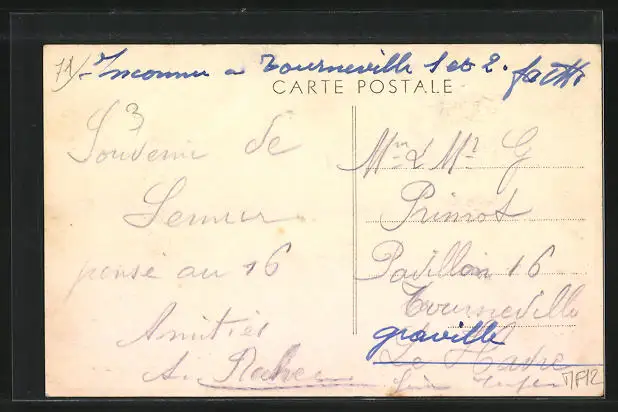 71/- Inconnu a Tourneville 1 et 2.
CARTE POSTALE
3
Souvenir de
Semur
pensé au 16
Amitiés
A. Rahec
Mme & Mr G
Primot
Pavillon 16
Tourneville
graville
Le Havre
Seine Infer
MF12